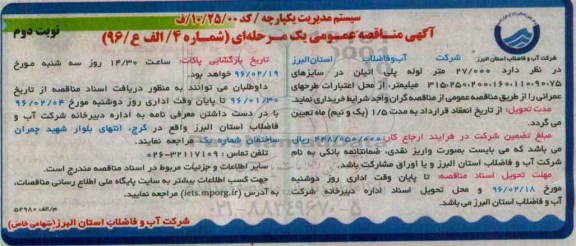 سیستم مدیریت یکپارچه / کد ۱۰/۲۵/۰۰/ف
آگهی مناقصه عمومی یک مرحله‌ای (شماره ۴/ الف ع/۹۶)
نوبت دوم
شرکت آب و فاضلاب استان البرز
شرکت آب‌وفاضلاب استان‌البرز
در نظر دارد ۲۷/۰۰۰ متر لوله پلی اتیلن در سایزهای
۳۱۵-۲۵۰-۲۰۰-۱۶۰-۱۱۰-۹۰-۷۵ میلیمتر، از محل اعتبارات طرحهای
عمرانی را از طریق مناقصه عمومی از مناقصه گران واجد شرایط خریداری نماید.
مدت تحویل: از تاریخ انعقاد قرارداد به مدت ۱/۵ (یک و نیم) ماه تعیین
می گردد.
مبلغ تضمین شرکت در فرایند ارجاع کار: ۴۴۸/۰۵۰/۰۰۰ ریال
می باشد که می بایست بصورت واریز نقدی، ضمانتنامه بانکی به نام
شرکت آب و فاضلاب استان البرز و یا اوراق مشارکت باشد.
مهلت تحویل اسناد مناقصه: تا پایان وقت اداری روز دوشنبه
مورخ ۹۶/۰۲/۱۸ و محل تحویل اسناد اداره دبیرخانه شرکت
آب و فاضلاب استان البرز می باشد.
تاریخ بازگشایی پاکات: ساعت ۱۴/۳۰ روز سه شنبه مورخ
۹۶/۰۲/۱۹ خواهد بود.
داوطلبان می توانند به منظور دریافت اسناد مناقصه از تاریخ
۹۶/۰۱/۳۰ تا پایان وقت اداری روز دوشنبه مورخ ۹۶/۰۲/۰۴
با در دست داشتن معرفی نامه به اداره دبیرخانه شرکت آب و
فاضلاب استان البرز واقع در کرج، انتهای بلوار شهید چمران
ساختمان شماره یک مراجعه نمایند.
تلفن تماس: ۳۲۱۱۷۱۰۹-۰۲۶
سایر اطلاعات و جزئیات مربوط در اسناد مناقصه مندرج است.
جهت کسب اطلاعات بیشتر به سایت پایگاه ملی اطلاع رسانی مناقصات،
به آدرس (iets.mporg.ir) مراجعه نمایید.
م/الف ۵۲۹۸۰
شرکت آب و فاضلاب استان البرز (سهامی خاص)